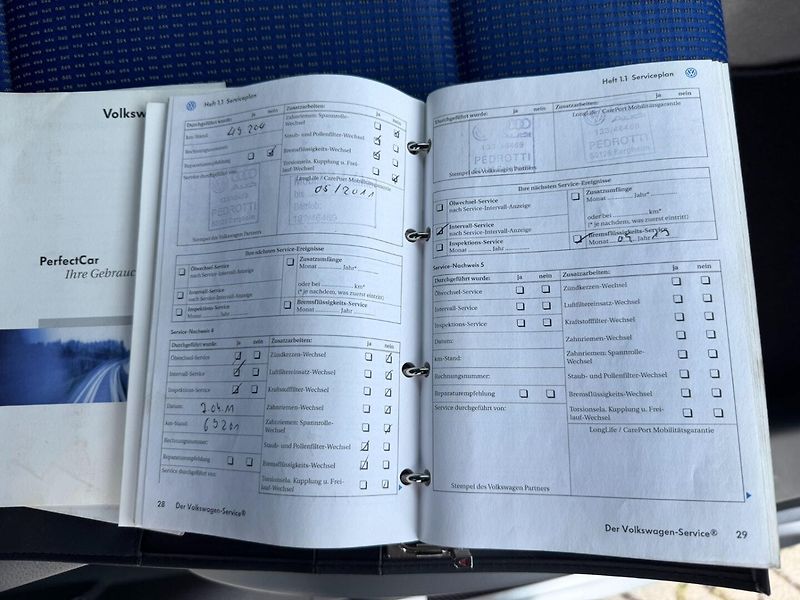 Volksw
PerfectCar
Ihre Gebrauc
Heft 1.1 Serviceplan
Durchgeführt wurde: ja nein
km-Stand: 49 204
Rechnungsnummer:
Reparaturempfehlung
Service durchgeführt von:
PEDROTTI
Stempel des Volkswagen Partners
Zusatzarbeiten: ja nein
Zahnriemen: Spannrolle-
Wechsel
Staub- und Pollenfilter-Wechsel
Bremsflüssigkeits-Wechsel
Torsionsela. Kupplung u. Frei-
lauf-Wechsel
LongLife / CarePort Mobilitätsgarantie
05/2011
Ihre nächsten Service-Ereignisse
Ölwechsel-Service
nach Service-Intervall-Anzeige
Intervall-Service
nach Service-Intervall-Anzeige
Inspektions-Service
Monat Jahr
Zusatzumfänge
Monat Jahr*
oder bei km*
(* je nachdem, was zuerst eintritt)
Bremsflüssigkeits-Service
Monat Jahr
Service-Nachweis 4
Durchgeführt wurde: ja nein
Ölwechsel-Service
Intervall-Service
Inspektions-Service
Datum: 7.04.11
km-Stand: 69201
Rechnungsnummer:
Reparaturempfehlung
Service durchgeführt von:
Zusatzarbeiten: ja nein
Zündkerzen-Wechsel
Luftfiltereinsatz-Wechsel
Kraftstofffilter-Wechsel
Zahnriemen-Wechsel
Zahnriemen: Spannrolle-
Wechsel
Staub- und Pollenfilter-Wechsel
Bremsflüssigkeits-Wechsel
Torsionsela. Kupplung u. Frei-
lauf-Wechsel
28 Der Volkswagen-Service®
Heft 1.1 Serviceplan
Durchgeführt wurde: ja nein
PEDROTTI
Stempel des Volkswagen Partners
Zusatzarbeiten: ja nein
LongLife / CarePort Mobilitätsgarantie
Ihre nächsten Service-Ereignisse
Ölwechsel-Service
nach Service-Intervall-Anzeige
Intervall-Service
nach Service-Intervall-Anzeige
Inspektions-Service
Monat Jahr
Zusatzumfänge
Monat Jahr*
oder bei km*
(* je nachdem, was zuerst eintritt)
Bremsflüssigkeits-Service
Monat 04 Jahr
Service-Nachweis 5
Durchgeführt wurde: ja nein
Ölwechsel-Service
Intervall-Service
Inspektions-Service
Datum:
km-Stand:
Rechnungsnummer:
Reparaturempfehlung
Service durchgeführt von:
Stempel des Volkswagen Partners
Zusatzarbeiten: ja nein
Zündkerzen-Wechsel
Luftfiltereinsatz-Wechsel
Kraftstofffilter-Wechsel
Zahnriemen-Wechsel
Zahnriemen: Spannrolle-
Wechsel
Staub- und Pollenfilter-Wechsel
Bremsflüssigkeits-Wechsel
Torsionsela. Kupplung u. Frei-
lauf-Wechsel
LongLife / CarePort Mobilitätsgarantie
Der Volkswagen-Service® 29